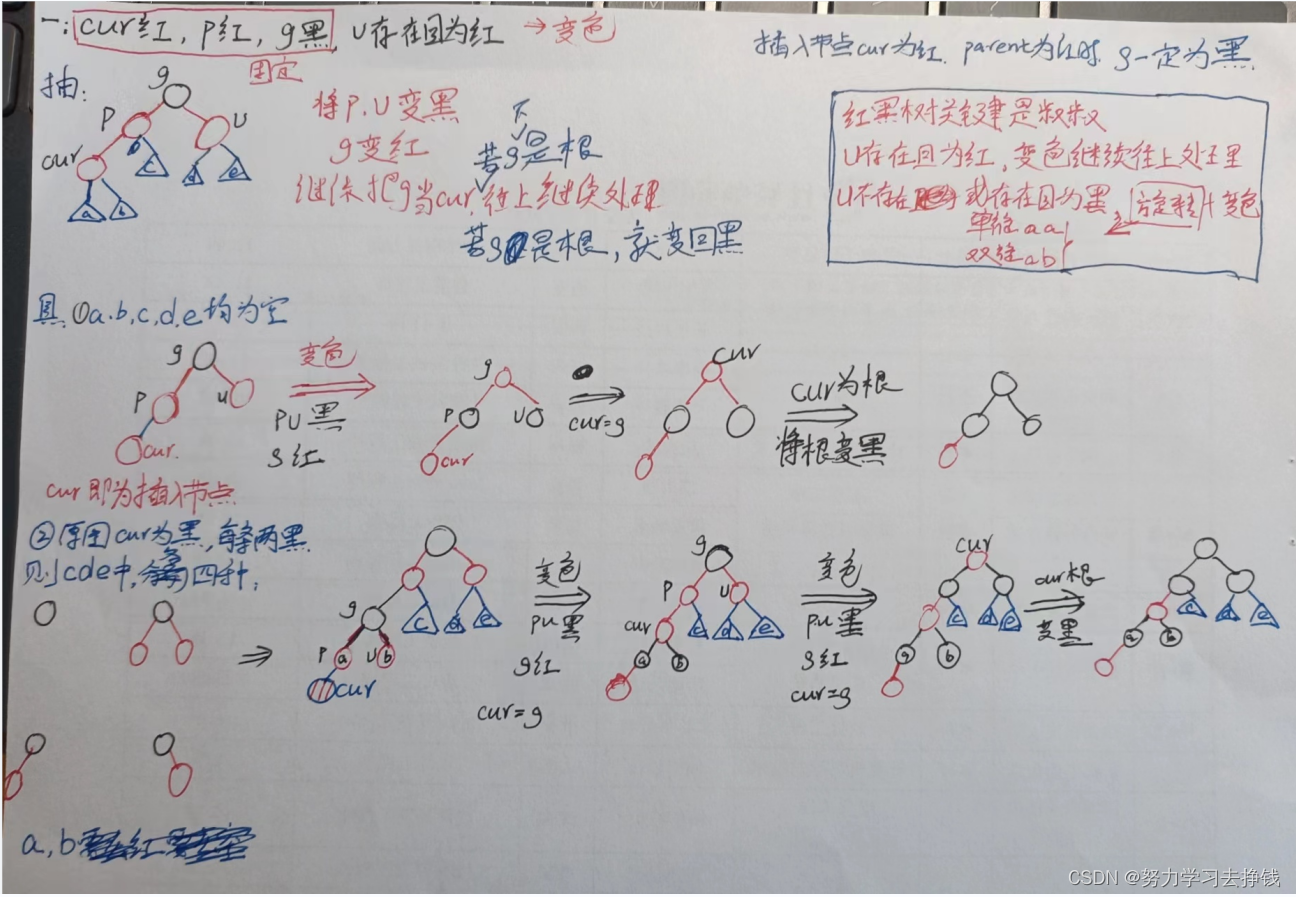 一: cur红, p红, g黑, u存在且为红 → 变色
固定
插入节点cur为红. parent为红时. g一定为黑
抽:
g
p
u
cur
a
b
c
d
e
将P.U变黑
g变红
不
若g是根
继续把g当cur,往上继续处理
若g是根, 就变回黑
红黑树关键是叔叔
U存在且为红, 变色继续往上处理
U不存在 或存在且为黑 旋转+变色
单旋
双旋
具.①a.b.c.d.e均为空
g
p
u
cur.
变色
PU黑
g红
g
p
u
cur
cur=g
cur
cur为根
将根变黑
cur即为插入节点
②原图cur为黑, 每条两黑
则cde中, 四种:
g
p
a
u
b
cur
c
d
e
变色
pu黑
g红
cur=g
g
p
u
cur
a
b
c
d
e
变色
pu黑
g红
cur=g
cur
a
b
c
d
e
cur根
变黑
a
b
c
d
e
a,b
CSDN @努力学习去挣钱